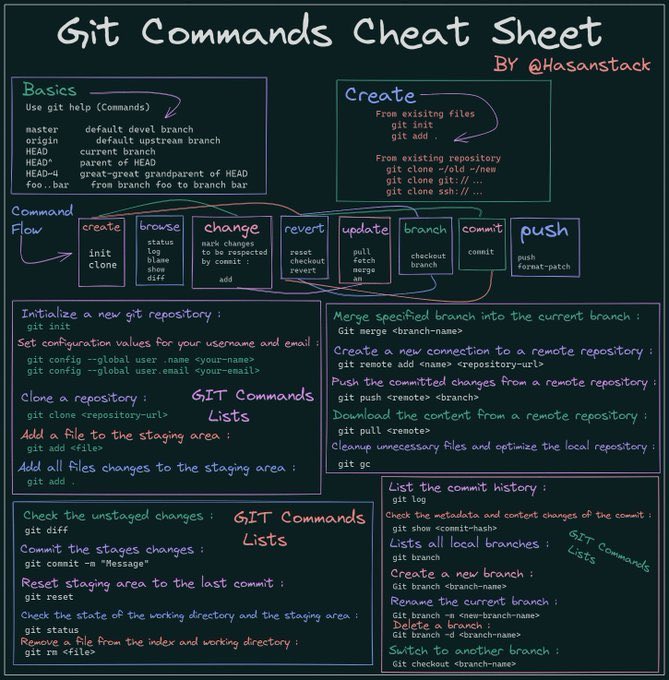 Git Commands Cheat Sheet
BY @Hasanstack
Basics
Use git help (Commands)
master default devel branch
origin default upstream branch
HEAD current branch
HEAD^ parent of HEAD
HEAD~4 great-great grandparent of HEAD
foo..bar from branch foo to branch bar
Create
From exisitng files
git init
git add .
From existing repository
git clone ~/old ~/new
git clone git://...
git clone ssh://...
Command
Flow
create
init
clone
browse
status
log
blame
show
diff
change
mark changes
to be respected
by commit :
add
revert
reset
checkout
revert
update
pull
fetch
merge
am
branch
checkout
branch
commit
commit
push
push
format-patch
Initialize a new git repository :
git init
Set configuration values for your username and email :
git config --global user .name <your-name>
git config --global user.email <your-email>
Clone a repository :
git clone <repository-url>
GIT Commands
Lists
Add a file to the staging area :
git add <file>
Add all files changes to the staging area :
git add .
Merge specified branch into the current branch :
Git merge <branch-name>
Create a new connection to a remote repository :
git remote add <name> <repository-url>
Push the committed changes from a remote repository :
git push <remote> <branch>
Download the content from a remote repository :
git pull <remote>
Cleanup unnecessary files and optimize the local repository :
git gc
Check the unstaged changes :
git diff
GIT Commands
Lists
Commit the stages changes :
git commit -m "Message"
Reset staging area to the last commit :
git reset
Check the state of the working directory and the staging area :
git status
Remove a file from the index and working directory :
git rm <file>
List the commit history :
git log
Check the metadata and content changes of the commit :
git show <commit-hash>
Lists all local branches :
git branch
GIT Commands
Lists
Create a new branch :
Git branch <branch-name>
Rename the current branch :
Git branch -m <new-branch-name>
Delete a branch :
Git branch -d <branch-name>
Switch to another branch :
Git checkout <branch-name>